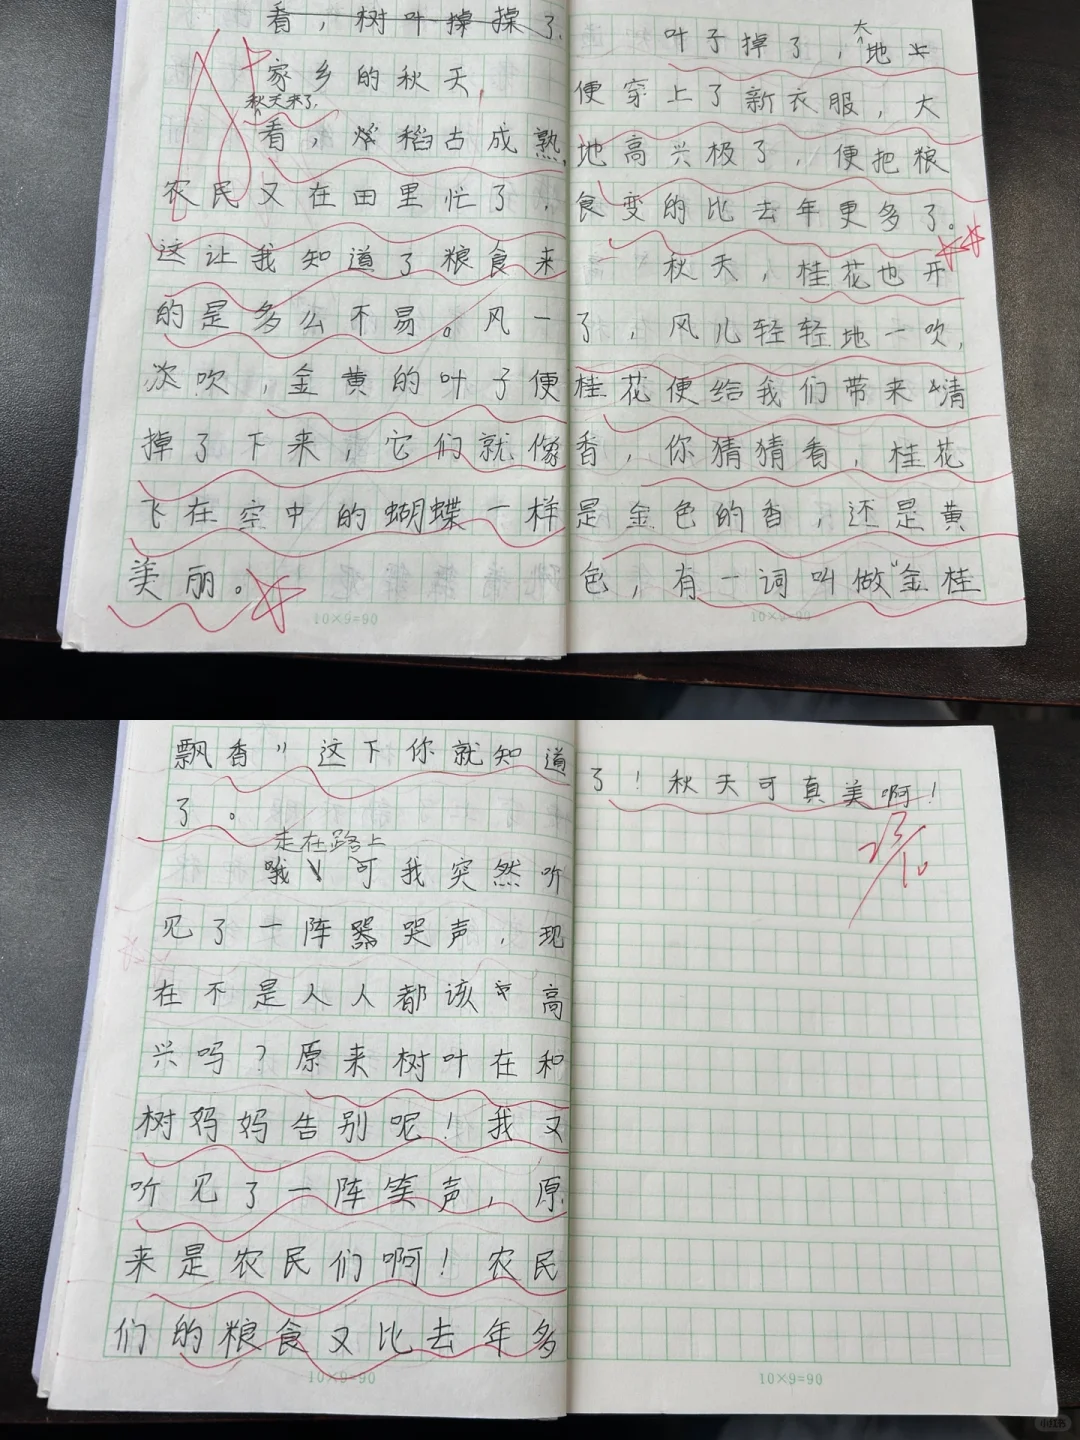 看，树叶掉
家乡的秋天
秋天来了，
看，稻古成熟，
农民又在田里忙了，
这让我知道了粮食来
的是多么不易。风一
次吹，金黄的叶子便
掉了下来，它们就像
飞在空中的蝴蝶一样
美丽。
10×9=90
叶子掉了，大地上
便穿上了新衣服，大
地高兴极了，便把粮
食变的比去年更多了。
秋天，桂花也开
了，风儿轻轻地一吹，
桂花便给我们带来清
香，你猜猜看，桂花
是金色的香，还是黄
色，有一词叫做“金桂
10×9=90
飘香”这下你就知道
了。
走在路上
可我突然听
见了一阵哭声，现
在不是人人都该高
兴吗？原来树叶在和
树妈妈告别呢！我又
听见了一阵笑声，原
来是农民们啊！农民
们的粮食又比去年多
10×9=90
了！秋天可真美啊！
10×9=90